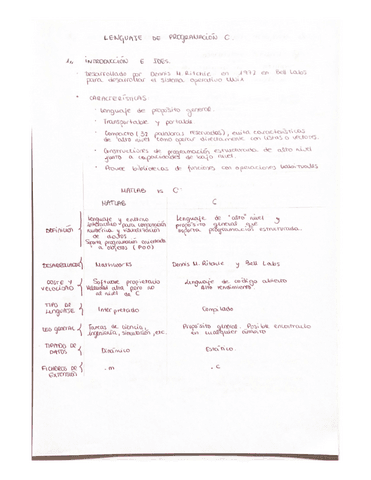 LENGUAJE DE PROGRAMACIÓN C.
1. INTRODUCCIÓN E IDES.
· Desarrollado por Dennis M. Ritchie en 1972 en Bell Labs
para desarrollar el sistema operativo UNIX
· CARACTERÍSTICAS:
· Lenguaje de propósito general.
· Transportable y portable
· Compacto (32 palabras reservadas), evita características
de "alto nivel" como operar directamente con listas o vectores.
· Construcciones de programación estructurada de alto nivel
junto a capacidades de bajo nivel.
· Provee bibliotecas de funciones con operaciones
MATLAB vs C
MATLAB C
DEFINICIÓN
Lenguaje y entorno
interactivo para computación
numérica y visualización
de datos
Soporta programación orientada
a objetos (POO)
Lenguaje de "alto" nivel y
propósito general que
soporta programación estructurada.
DESARROLLADOR Mathworks Dennis M. Ritchie y Bell Labs
COSTE Y
VELOCIDAD
Software propietario
Velocidad alta pero no
al nivel de C
Lenguaje de código abierto
Alto rendimiento
TIPO DE
LENGUAJE Interpretado Compilado
USO GENERAL
Tareas de ciencia,
ingeniería, simulación, etc.
Propósito general. Posible encontrarlo
en cualquier ámbito
TIPADO DE
DATOS Dinámico Estático
FICHEROS DE
EXTENSIÓN .m .c